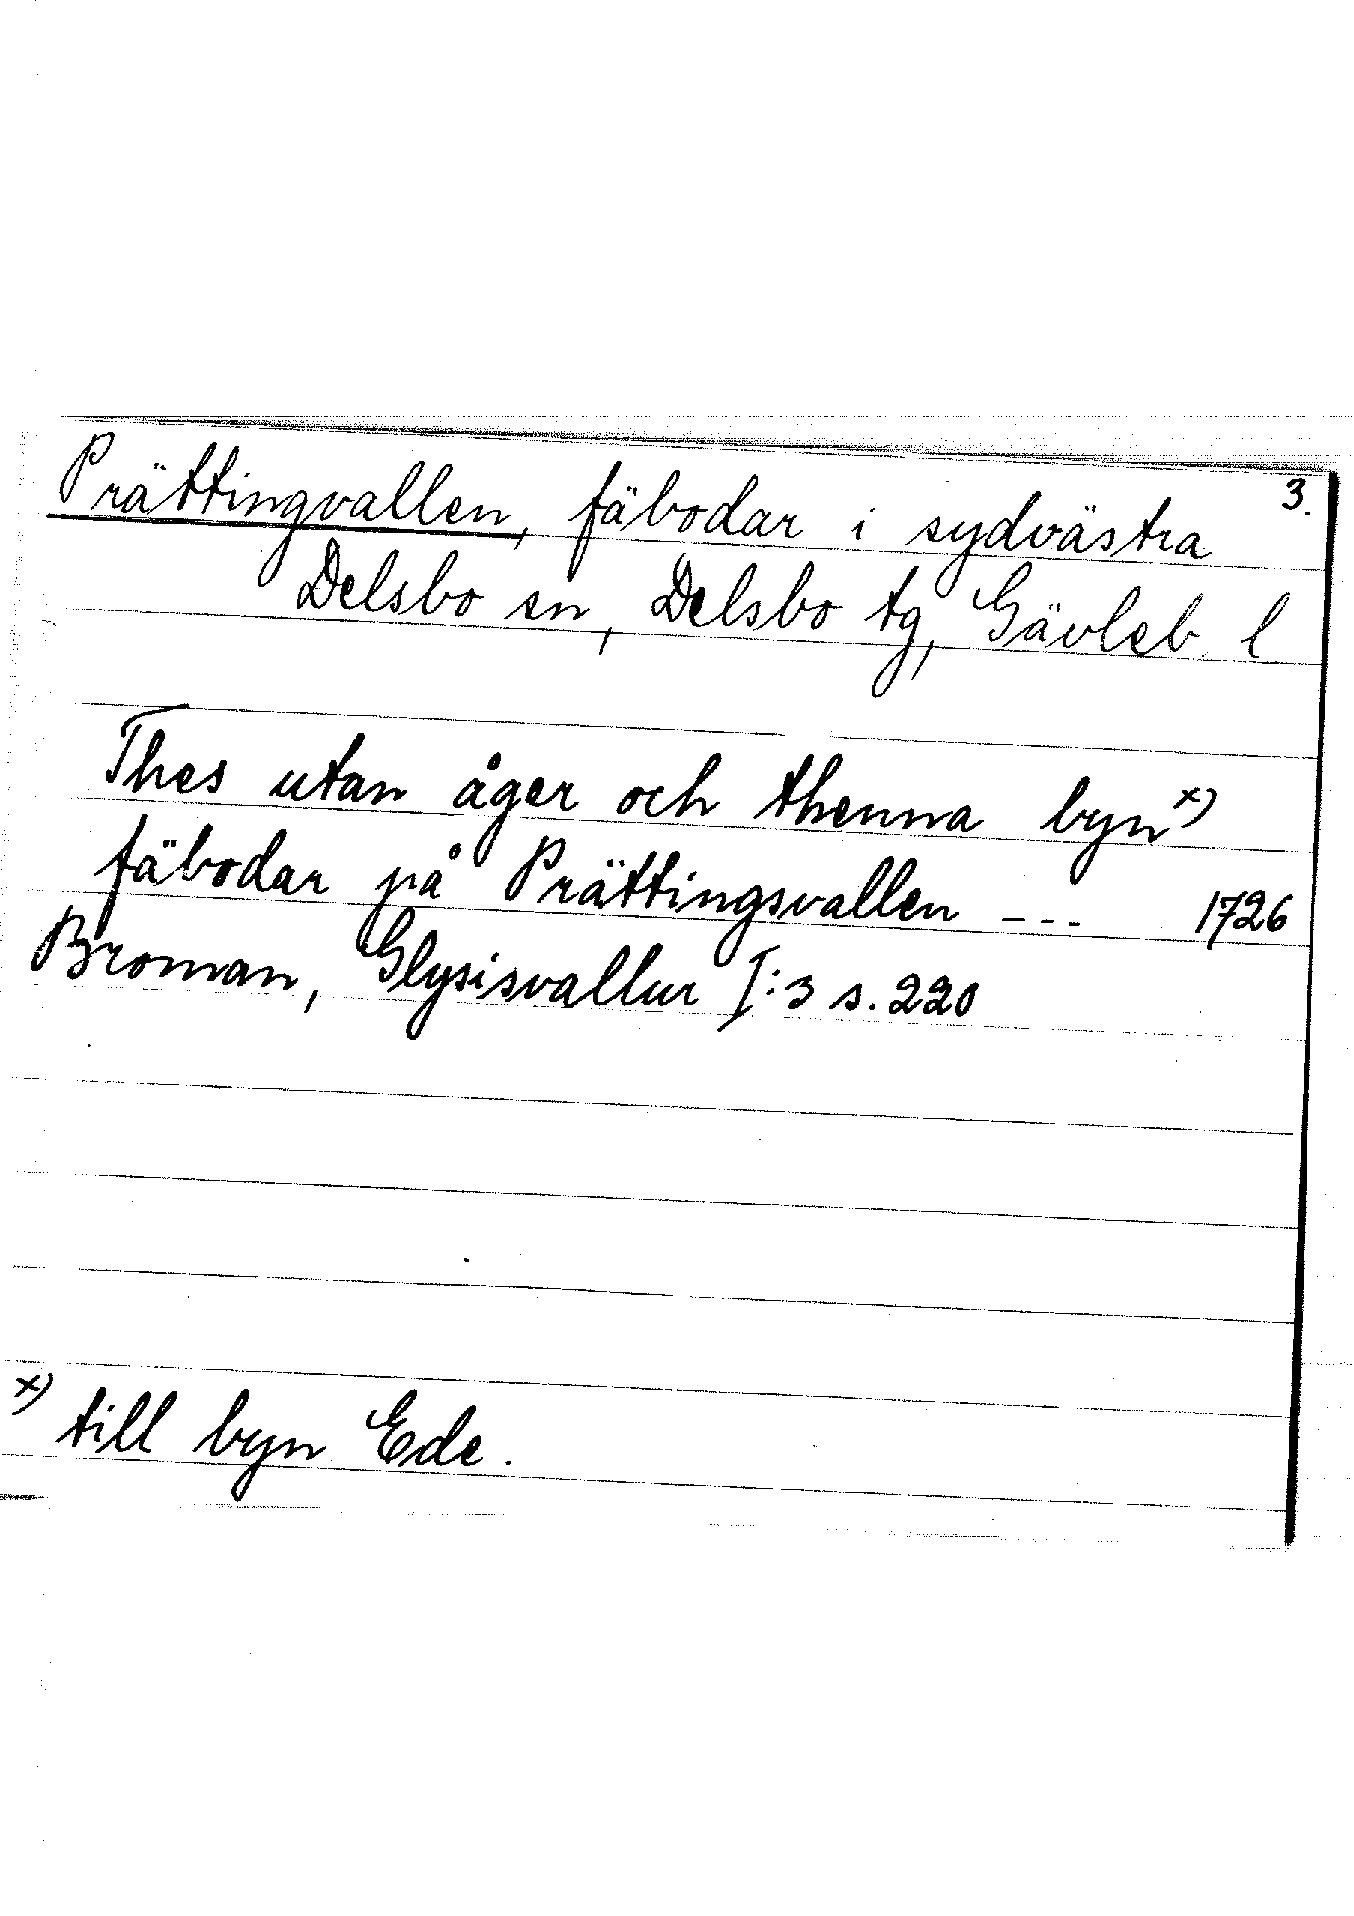 3.
Prättingvallen, fäbodar i sydvästra
Delsbo sn, Delsbo tg, Gävleb. l
Thes utan åger och thenna byn x)
fäbodar på Prättingsvallen --- 1726
Broman, Glysisvallur I:3 s. 220
x) till byn Ede.